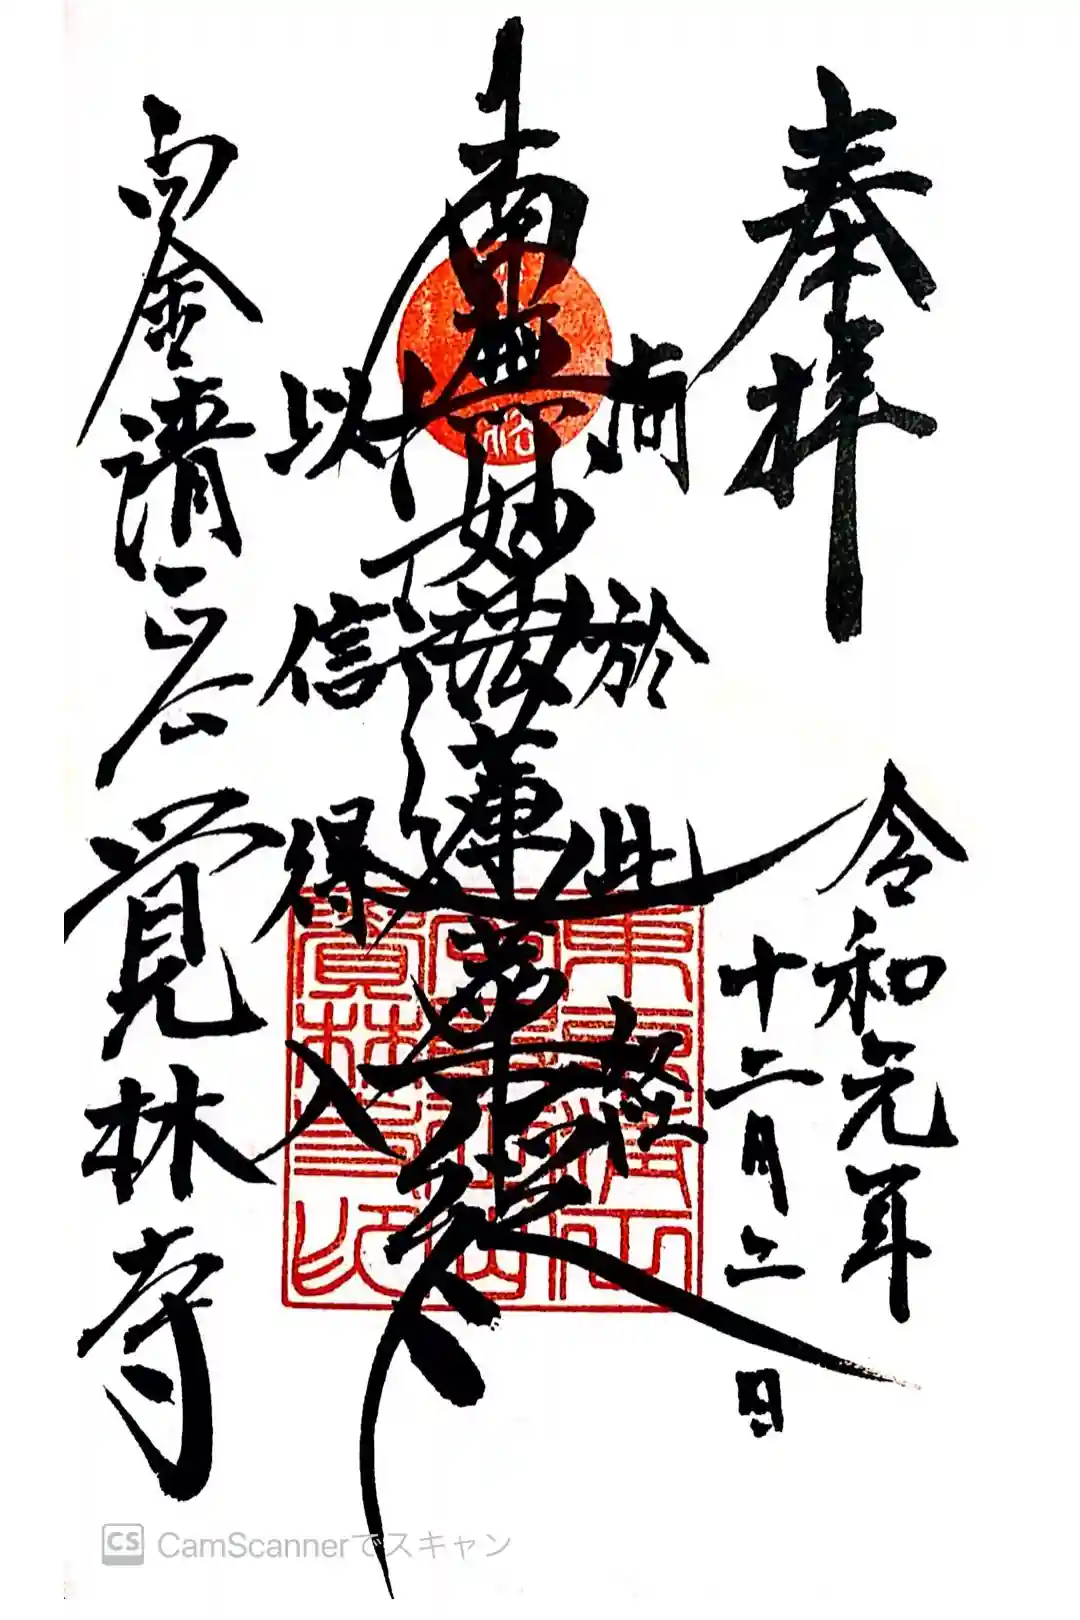 奉拝
令和元年
十二月二日
南無妙法蓮華経
尚於此経
以信得入
白金清正公
覚林寺
CS CamScannerでスキャン